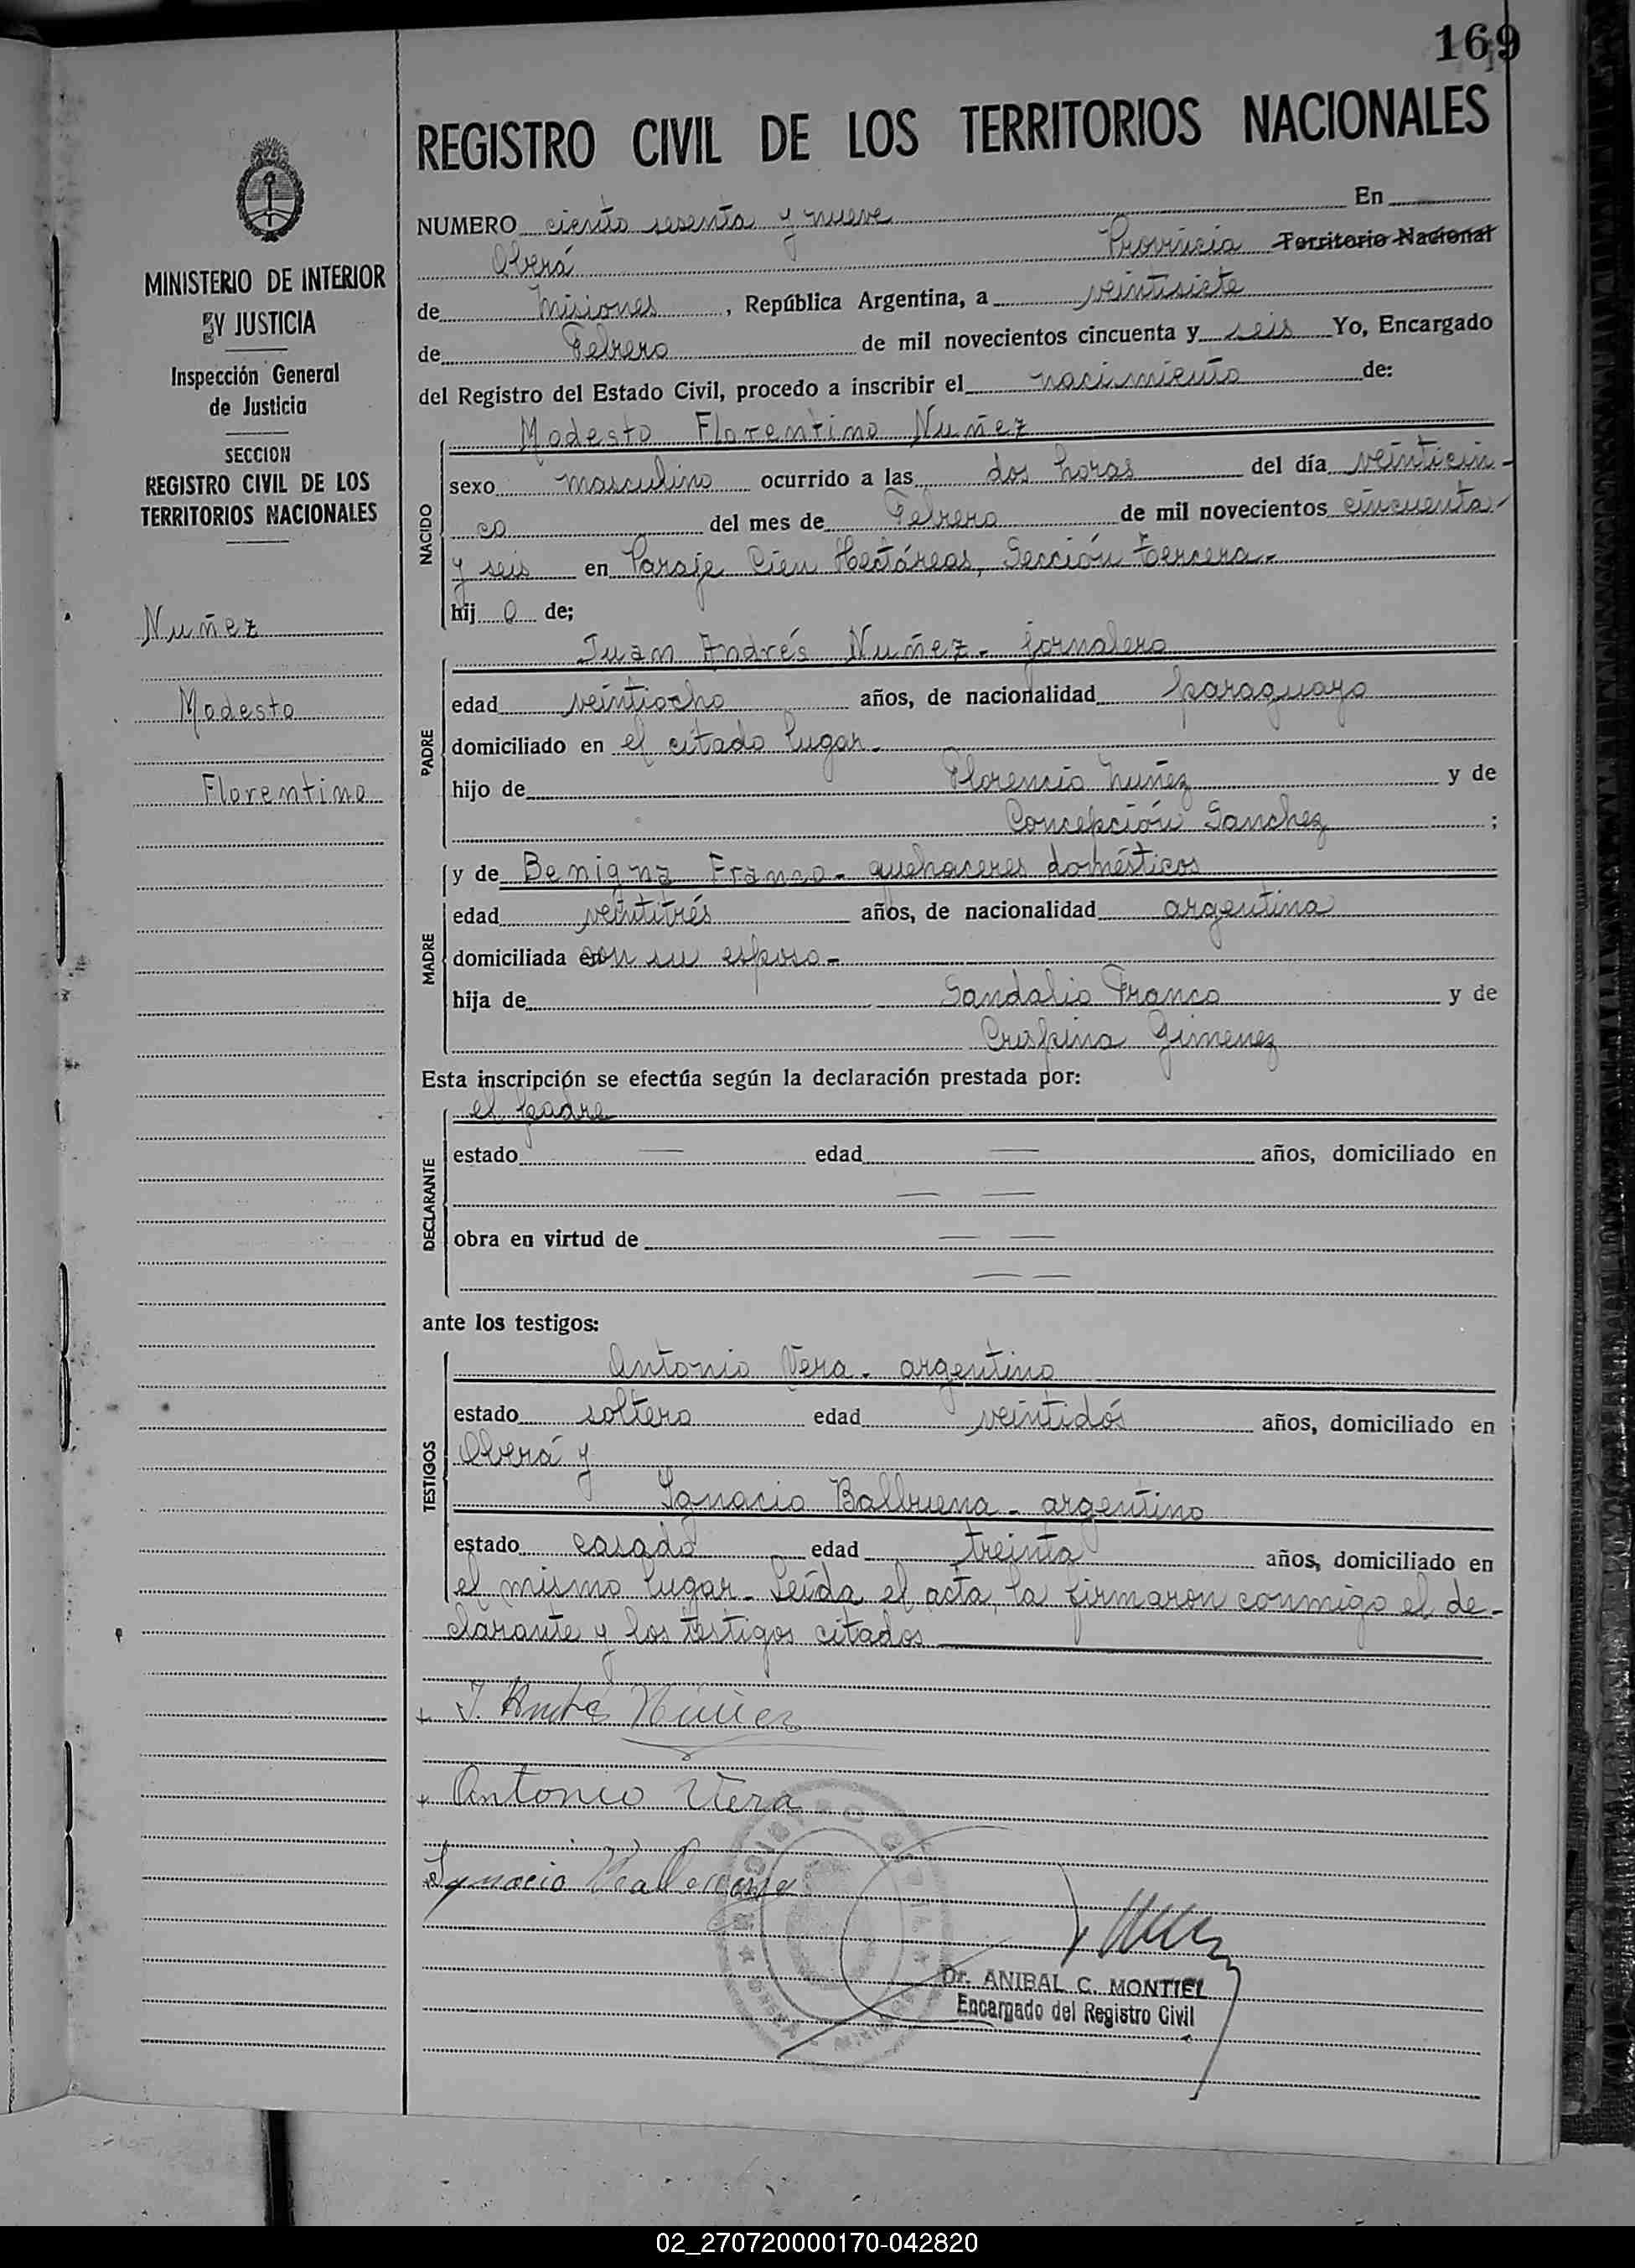 169
REGISTRO CIVIL DE LOS TERRITORIOS NACIONALES
MINISTERIO DE INTERIOR
Y JUSTICIA
Inspección General
de Justicia
SECCION
REGISTRO CIVIL DE LOS
TERRITORIOS NACIONALES
Nuñez
Modesto
Florentino
NUMERO ciento sesenta y nueve En
Oberá Provincia Territorio Nacional
de Misiones, República Argentina, a veintisiete
de Febrero de mil novecientos cincuenta y seis Yo, Encargado
del Registro del Estado Civil, procedo a inscribir el nacimiento de:
NACIDO
Modesto Florentino Nuñez
sexo masculino ocurrido a las dos horas del día veinticin-
co del mes de Febrero de mil novecientos cincuenta
y seis en Paraje Cien Hectáreas, Sección tercera.-
hij o de;
PADRE
Juan Andrés Nuñez - jornalero
edad veintiocho años, de nacionalidad paraguayo
domiciliado en el citado lugar.
hijo de Florencio Nuñez y de
Concepción Sanchez ;
MADRE
y de Benigna Franco - quehaceres domésticos
edad veintitrés años, de nacionalidad argentina
domiciliada con su esposo -
hija de Sandalio Franco y de
Crispina Gimenez
Esta inscripción se efectúa según la declaración prestada por:
DECLARANTE
el padre
estado — edad — años, domiciliado en
— —
obra en virtud de — —
— —
ante los testigos:
TESTIGOS
Antonio Vera - argentino
estado soltero edad veintidós años, domiciliado en
Oberá y
Ignacio Balbuena - argentino
estado casado edad treinta años, domiciliado en
el mismo lugar - Leída el acta, la firmaron conmigo el de-
clarante y los testigos citados
J. Andrés Núñez
Antonio Vera
Ignacio
Dr. ANIBAL C. MONTIEL
Encargado del Registro Civil
02_270720000170-042820